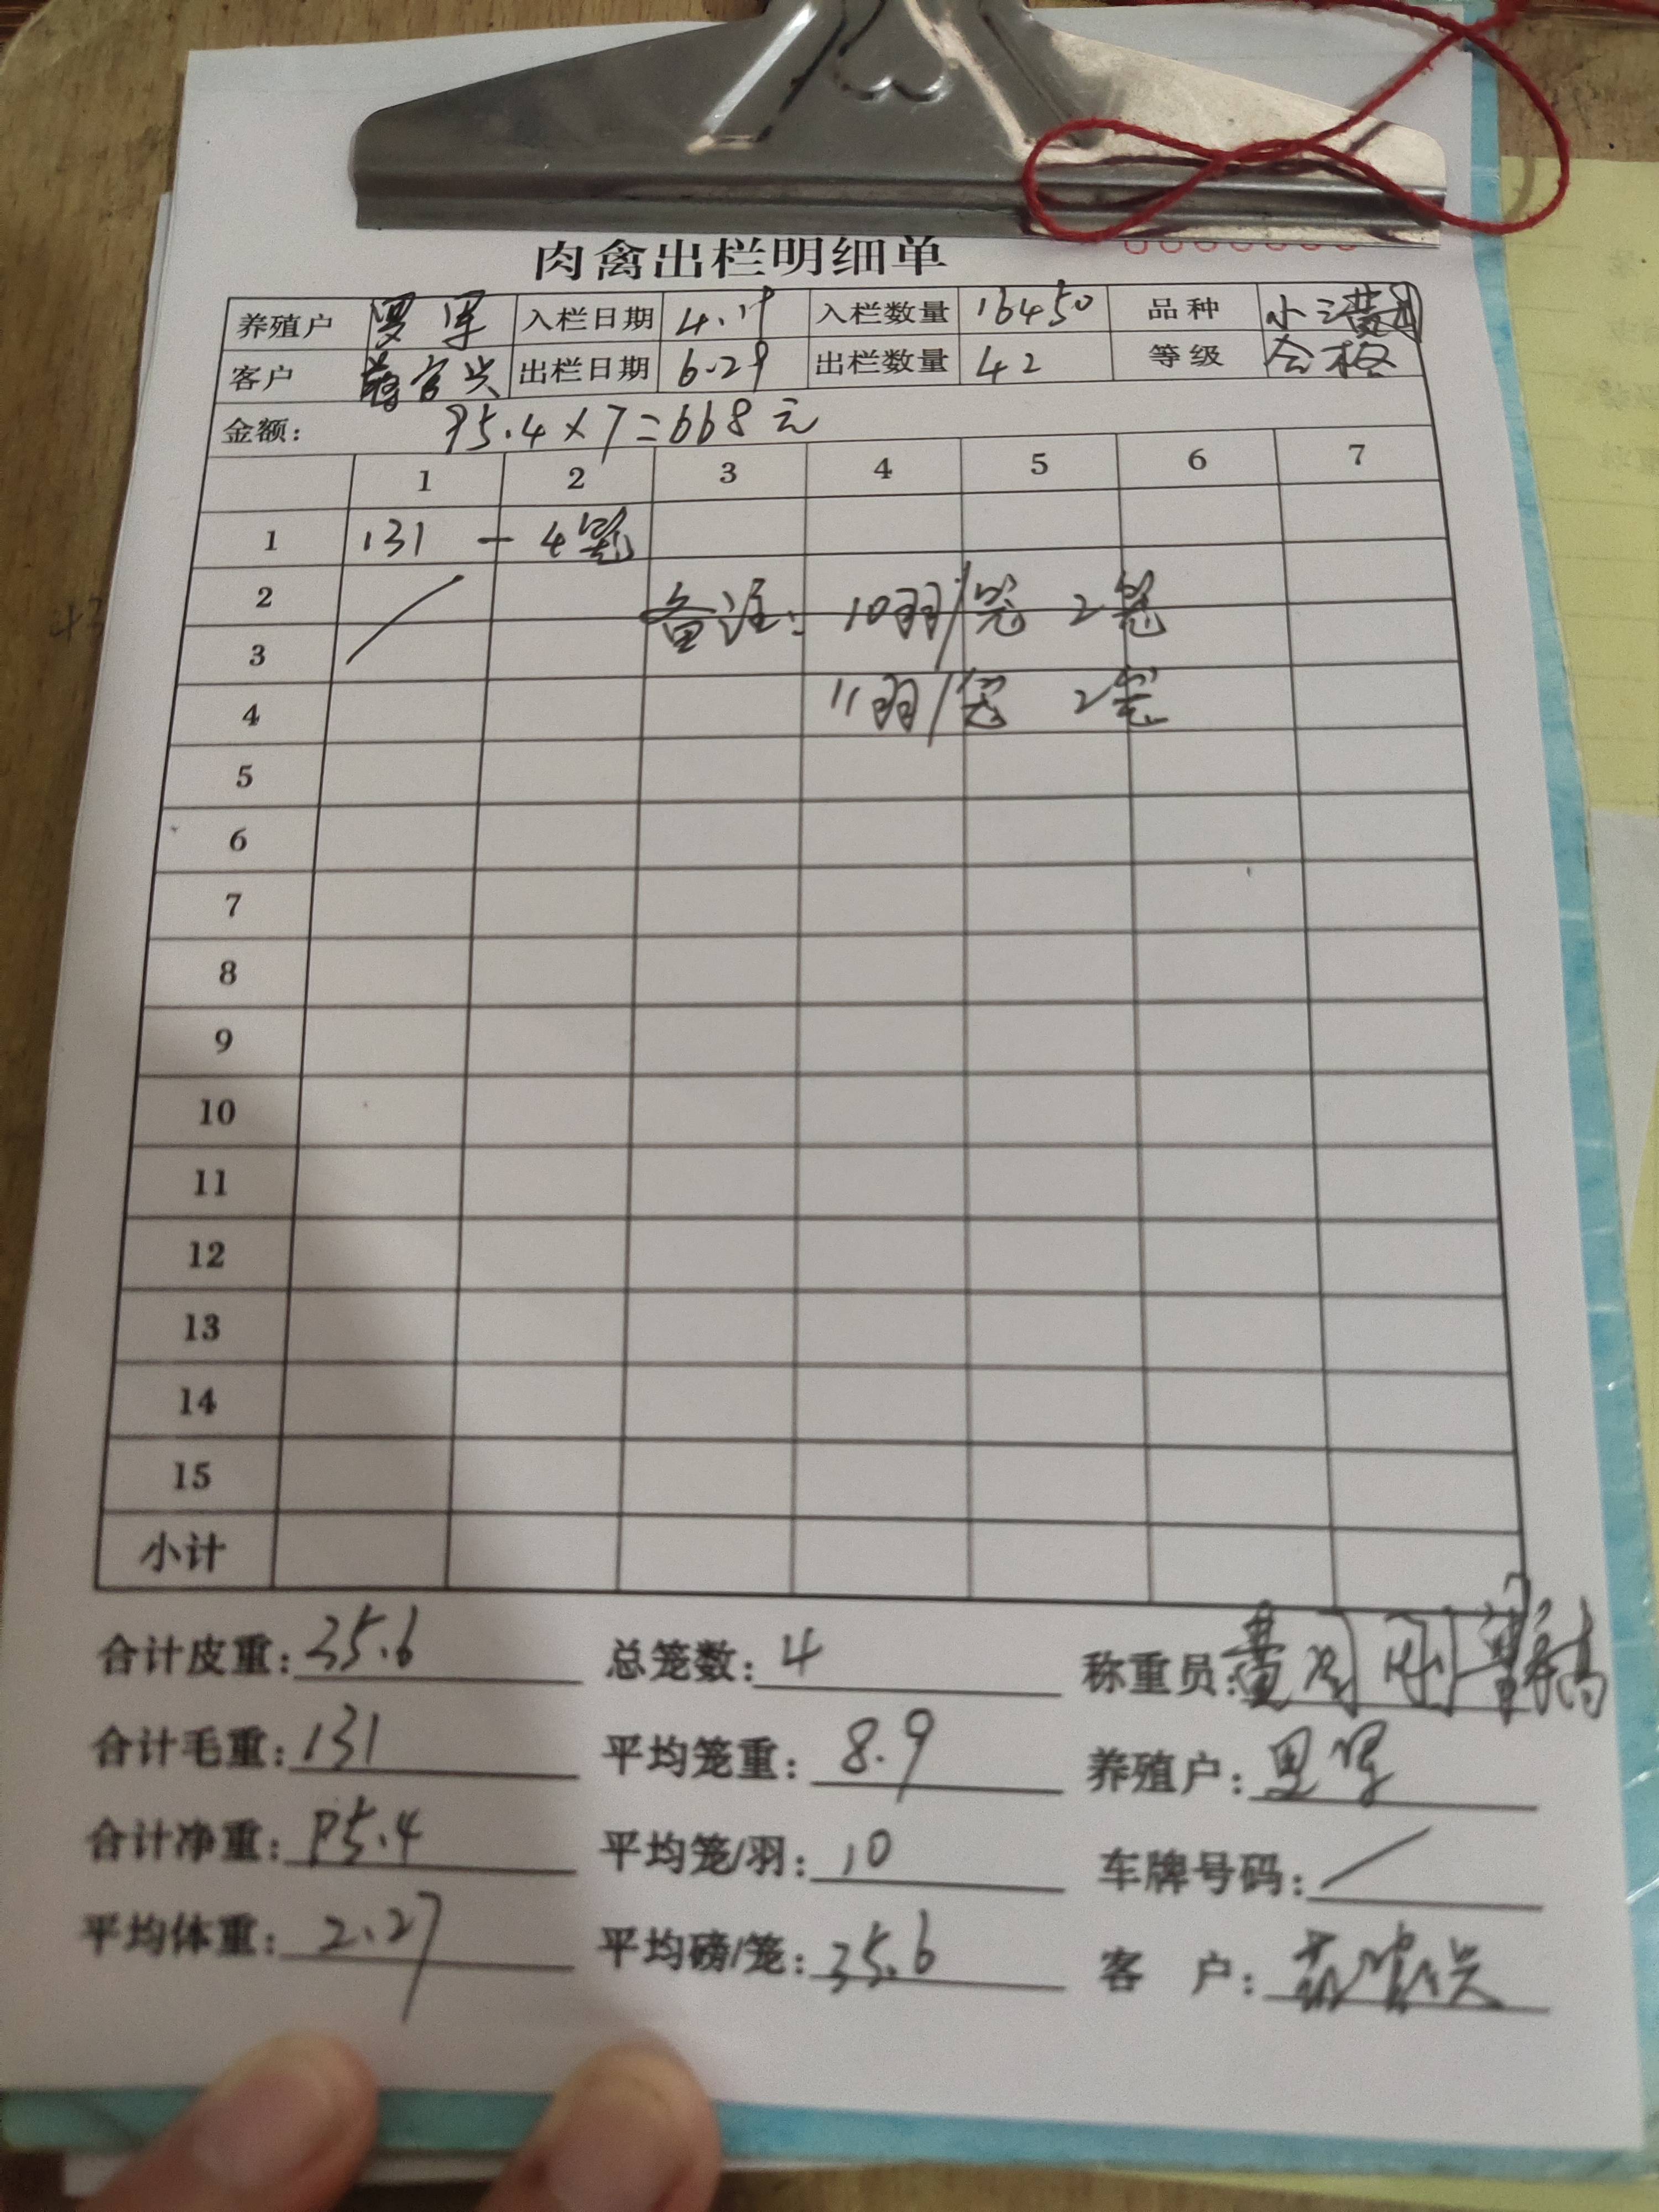 肉禽出栏明细单
养殖户 罗军 入栏日期 4.19 入栏数量 16450 品种 小三黄
客户 官兴 出栏日期 6.29 出栏数量 42 等级 合格
金额: 95.4×7=668元
1 2 3 4 5 6 7
1 131 — 4笼
2 备注: 10羽/笼 2笼
3
4 11羽/笼 2笼
5
6
7
8
9
10
11
12
13
14
15
小计
合计皮重: 35.6 总笼数: 4 称重员: 黄
合计毛重: 131 平均笼重: 8.9 养殖户: 罗军
合计净重: 95.4 平均笼/羽: 10 车牌号码: /
平均体重: 2.27 平均磅/笼: 35.6 客 户: